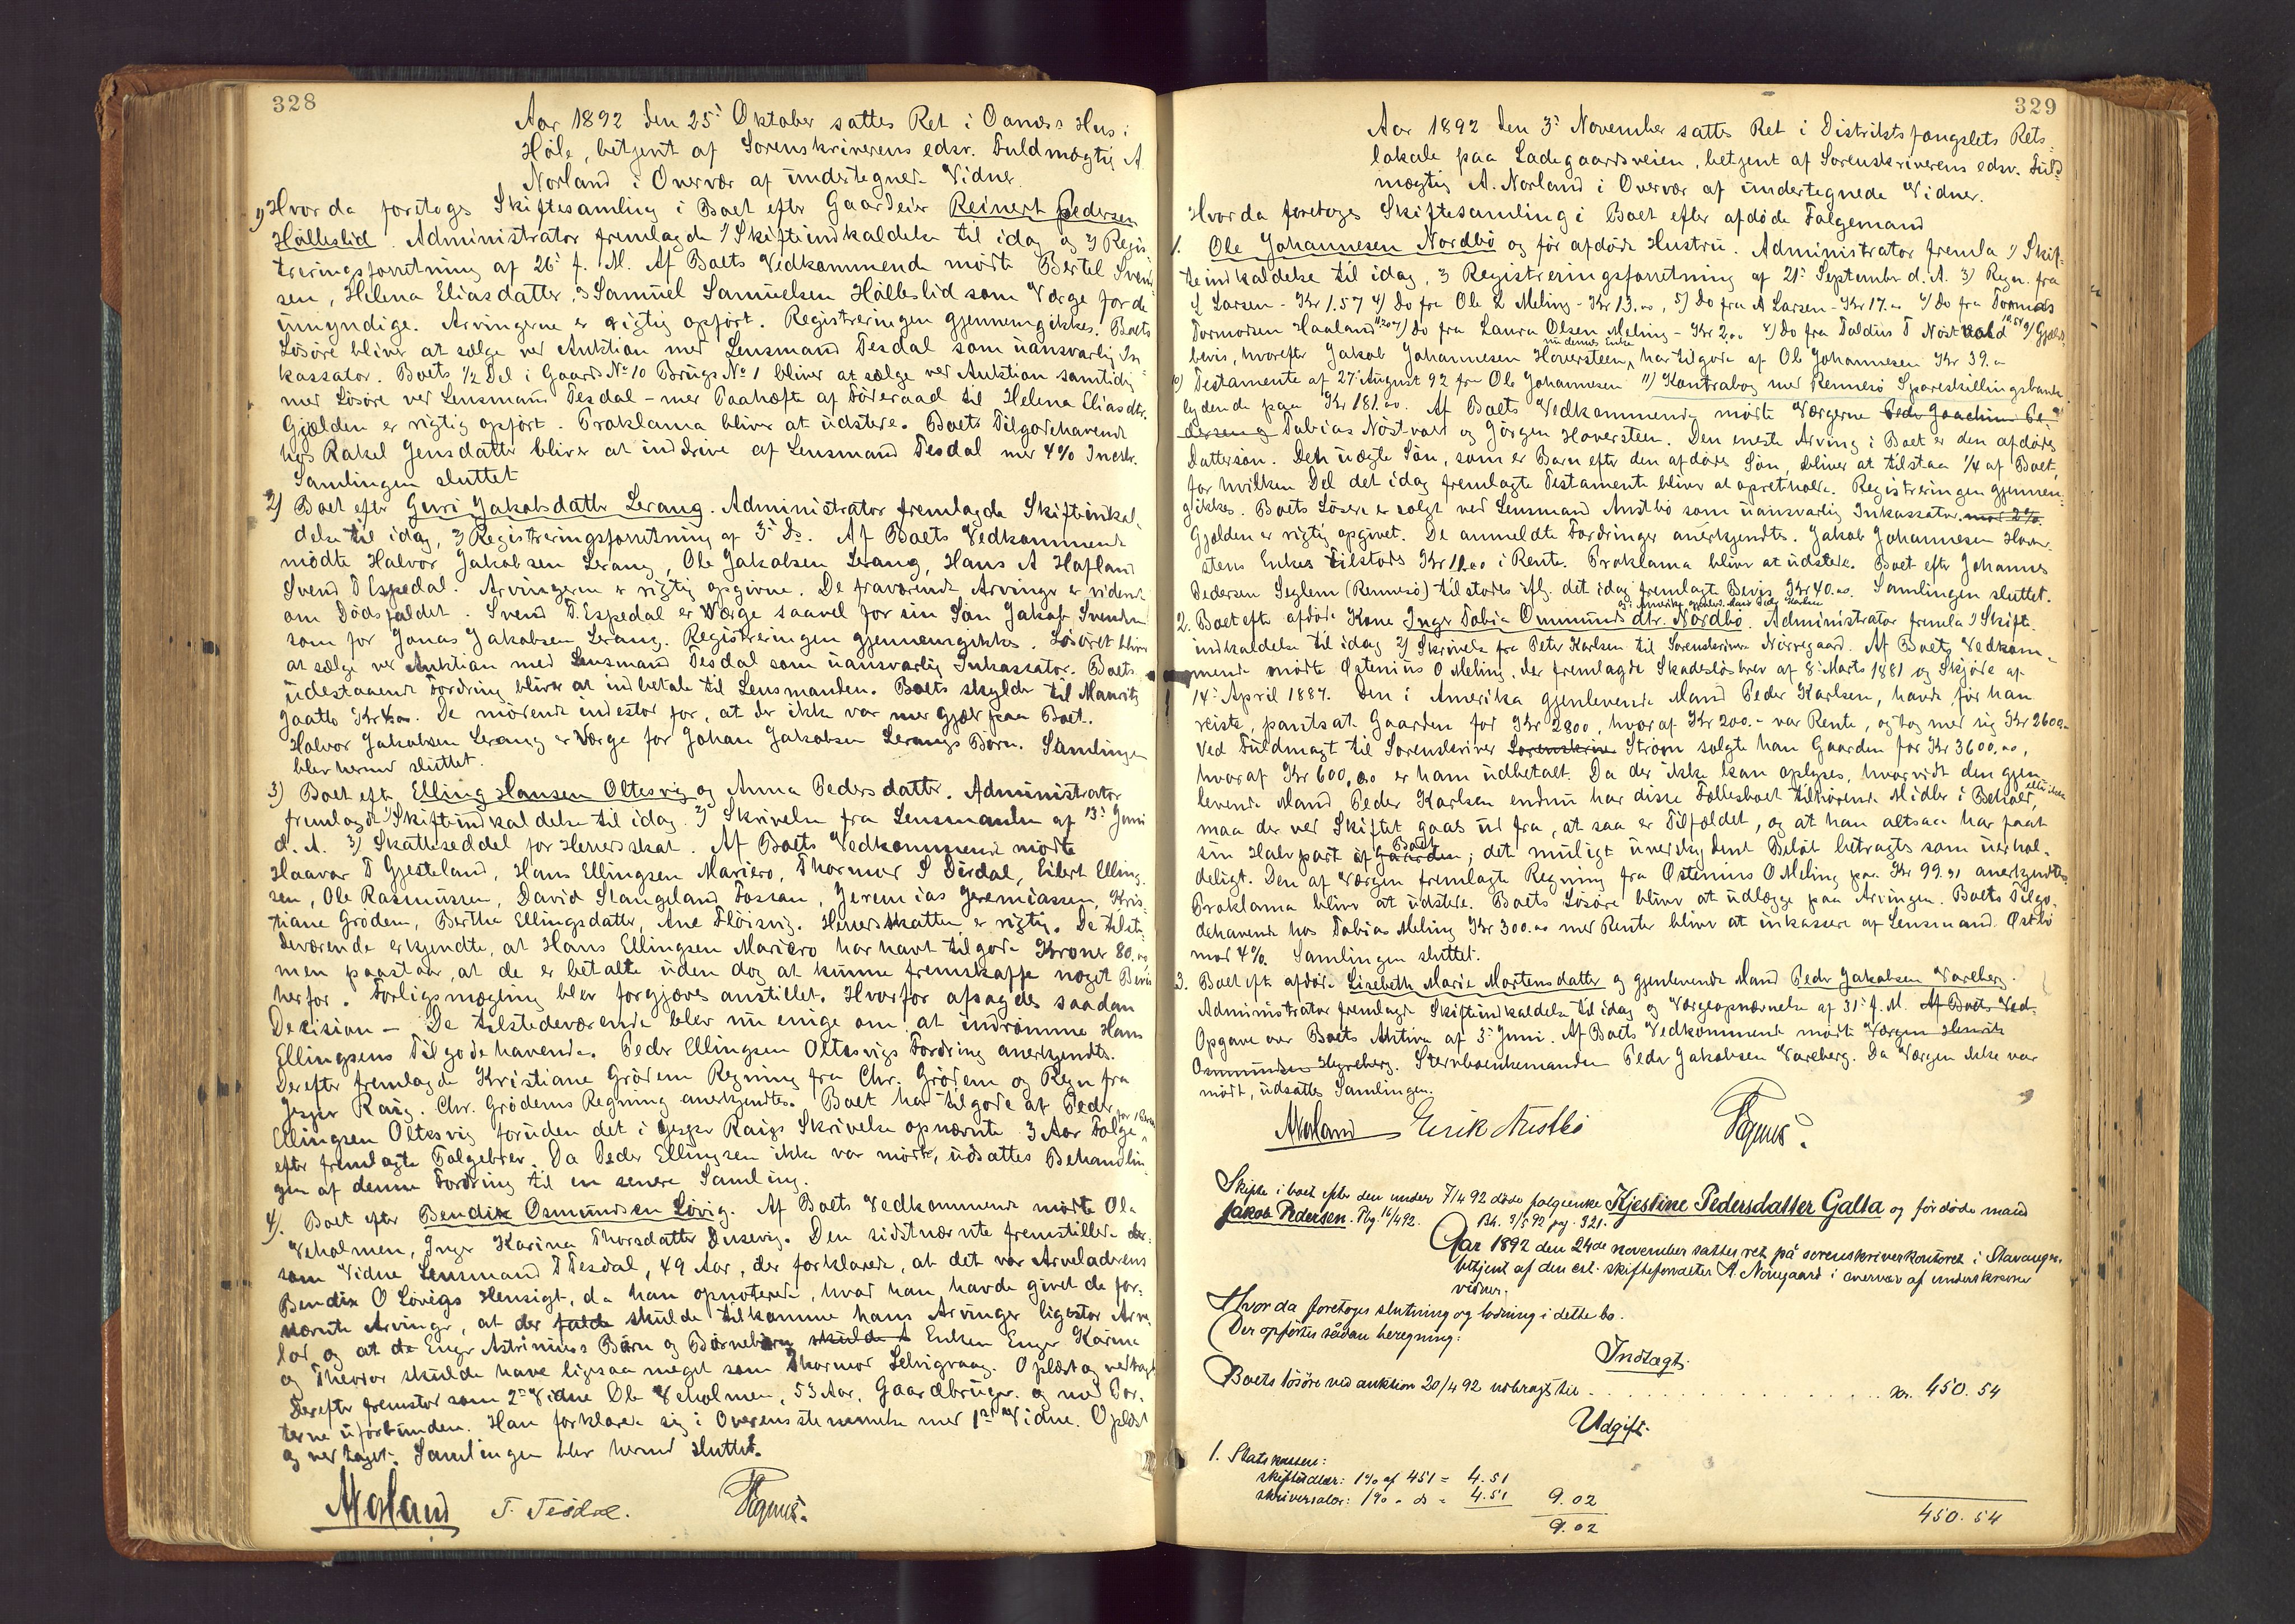 328
Aar 1892 den 25' Oktober sattes Ret i Oanæs Hus i
Høle, betjent af Sorenskriverens edsv. Fuldmægtig A
Norland i Overvær af undertegnede Vidner.
1) Hvor da foretoges Skiftesamling i Boet efter Gaardeier Reinert Pedersen
Hålleslid. Administrator fremlagde 1) Skifteindkaldelse til idag og 2) Regi-
streringsforretning af 26' f. M. Af Boets Vedkommende mødte Bertel Svend-
sen, Helena Eliasdatter, og Samuel Samuelsen Hålleslid som Værge for de
umyndige. Arvingerne er rigtig opført. Registreringen gjennemgikkes. Boets
Løsøre bliver at sælge ved Auktion med Lensmand Tesdal som uansvarlig In-
kassator. Boets 1/2 Del i Gaards No 10 Brugs No 1 bliver at sælge ved Auktion samtidig
med Løsøre ved Lensmand Tesdal - med Paahæfte af Føderaad til Helena Eliasdtr.
Gjælden er rigtig opført. Proklama bliver at udstede. Boets Tilgodehavende
hos Rakel Jensdatter bliver at inddrive af Lensmand Tesdal med 4% Incstr.
Samlingen sluttet
2) Boet efter Guri Jakobsdatter Lerang. Administrator fremlagde Skifteindkal-
delse til idag, 2) Registreringsforretning af 3' Ds. Af Boets Vedkommende
mødte Halvor Jakobsen Lerang, Ole Jakobsen Lerang, Hans A Hafland
Svend T Espedal. Arvingerne er rigtig opgivne. De fraværende Arvinge er vidende
om Dødsfaldet. Svend T. Espedal er Værge saavel for sin Søn Jakob Svendsen
som for Jonas Jakobsen Lerang. Registreringen gjennemgikkes. Løsøret bliver
at sælge ved Auktion med Lensmand Tesdal som uansvarlig Inkassator. Boets
udestaaende Fordring bliver at indbetale til Lensmanden. Boets skylder til Mauritz
Jaatto Kr 4.00. De mødende indestod for, at der ikke var mer Gjæld paa Boet.
Halvor Jakobsen Lerang er Værge for Johan Jakobsen Lerangs Børn. Samlingen
blev hermed sluttet.
3) Boet eft. Elling Hansen Oltesvig og Anna Pedersdatter. Administrator
fremlagde 1) Skifteindkaldelse til idag. 2) Skrivelse fra Lensmanden af 13' Juni
d. A. 3) Skatteseddel for Herredsskat. Af Boets Vedkommende mødte
Haavar T Gjesteland, Hans Ellingsen Mariero, Thormod S Dirdal, Eilert Elling-
sen, Ole Rasmussen, David Slangeland Fossan, Jeremias Jeremiassen, Kris-
tiane Grødem, Berthe Ellingsdatter, Ane Fløisvig. Herredsskatten er rigtig. De tilste-
deværende erkjendte, at Hans Ellingsen Mariero har havt tilgode Kroner 80.00
men paastaar, at de er betalte uden dog at kunne fremskaffe noget Bevis
herfor. Forligsmægling blev forgjæves anstillet. Hvorfor afsagdes saadan
Decision - De tilstedeværende blev nu enige om, at indrømme Hans
Ellingsens Tilgodehavende. Peder Ellingsen Oltesvigs Fordring anerkjendtes.
Derefter fremlagde Kristiane Grødem Regning fra Chr. Grødem og Regn fra
Jesper Raig. Chr. Grødems Regning anerkjendtes. Boet har tilgode af Peder
Ellingsen Oltesvig foruden det i Jesper Raigs Skrivelse opnævnte 3 Aar Folge
efter fremlagte Folgebrev. Da Peder Ellingsen ikke var mødt, udsattes Behandlin-
gen af denne Fordring til en senere Samling.
4). Boet efter Bendix Osmundsen Løvig. Af Boets Vedkommende mødte Ole
Veholmen, Inger Karina Thorsdatter Dusevig. Den sidstnævnte fremstillede
som Vidne Lensmand T Tesdal, 49 Aar, der forklarede, at det var Arveladerens
Bendix O Løvigs Hensigt, da han opnoterede, hvad han havde givet de for-
nævnte Arvinge, at der skulde tilkomme hans Arvinger ligestor Arve-
lod, og at de Enge Astrinius Børn og Børnebørn skulde Enken Enger Karina
og Theodor skulde have ligesaa meget som Thormod Selvigraag. Oplæst og vedtaget
Derefter fremstod som 2' Vidne Ole Veholmen, 53 Aar, Gaardbruger og med Par-
terne uforbunden. Han forklarede sig i Overensstemmelse med 1ste Vidne. Oplæst
og vedtaget. Samlingen blev hermed sluttet.
Norland T. Tesdal.
329
Aar 1892 den 3' November sattes Ret i Distriktsfængslets Rets-
lokale paa Ladegaardsveien, betjent af Sorenskriverens edsv. Fuld-
mægtig A. Norland i Overvær af undertegnede Vidner.
Hvor da foretoges Skiftesamling i Boet efter afdøde Folgemand
1. Ole Johannesen Nordbø og før afdøde Hustru. Administrator fremla 1) Skif-
teindkaldelse til idag, 2) Registreringsforretning af 21' September d. A. 3) Regn. fra
L Larsen - Kr 1.57 4) Do fra Ole L Meling - Kr 13.00, 5) Do fra A Larsen - Kr 17.00 6) Do fra Tormod
Tormodsen Haaland 7) Do fra Laura Olsen Meling - Kr 2.00 8) Do fra Tobias T Nöstvold 9) Gjælds-
bevis, hvorefter Jakob Johannesen Hoversteen, nu dennes Enke har tilgode af Ole Johannesen Kr 39.00
10) Testamente af 27' August 92 fra Ole Johannesen 11) Kontrabog med Rennesø Spareskillingsbank
lydende paa Kr 181.00. Af Boets Vedkommende mødte Værgerne Peder Joachim Pe-
dersen og Tobias Nöstvold og Jørgen Hoversteen. Den eneste Arving i Boet er den afdødes
Dattersøn. Den uægte Søn, som er Barn efter den afdødes Søn, bliver at tilstaa 1/4 af Boet,
for hvilken Del det idag fremlagte Testamente bliver at opretholde. Registreringen gjennem-
gikkes. Boets Løsøre er solgt ved Lensmand Austbø som uansvarlig Inkassator mod 2%.
Gjælden er rigtig opgivet. De anmeldte Fordringer anerkjendtes. Jakob Johannesen Hover-
stens Enkes tilstodes Kr 10.00 i Rente. Proklama bliver at udstede. Boet efter Johannes
Pedersen Seglem (Rennesø) tilstodes iflg. det idag fremlagte Bevis Kr 40.00. Samlingen sluttet.
2. Boet eft afdøde Kone Inger Tobia Ommundsdtr. Nordbø og i Amerika gjenlev. Mand Peder Karlsen. Administrator fremla 1) Skifte-
indkaldelse til idag 2) Skrivelse fra Peter Karlsen til Sorenskriver Nørregaard. Af Boets Vedkom-
mende mødte Østenius O Meling, der fremlagde Skadesløsbrev af 8' Marts 1881 og Skjøde af
14' April 1884. Den i Amerika gjenlevende Mand Peder Karlsen, havde før han
reiste, pantsat Gaarden for Kr 2800, hvoraf Kr 200.- var Rente, og tog med sig Kr 2600.-
Ved Fuldmagt til Sorenskriver Sorenskriver Strøm solgte han Gaarden for Kr 3600.00,
hvoraf Kr 600.00 er ham udbetalt. Da der ikke kan oplyses, hvorvidt den gjen-
levende Mand Peder Karlsen endnu har disse Fællesboet tilhørende Midler i Behold, eller ikke
maa der ved Skiftet gaaes ud fra, at saa er Tilfældet, og at han altsaa har faat
sin Halvpart af Gaarden Boet; det muligt overskydende Beløb betragtes som uerhol-
deligt. Den af Værgen fremlagte Regning fra Østenius O Meling paa Kr 99.91 anerkjendtes
Proklama bliver at udstede. Boets Løsøre bliver at udlægge paa Arvingen. Boets Tilgo-
dehavende hos Tobias Meling Kr 300.00 med Renter bliver at inkassere af Lensmand Østbø
mod 4%. Samlingen sluttet.
3. Boet eft afdøde Lisebeth Marie Mortensdatter og gjenlevende Mand Peder Jakobsen Vareberg.
Administrator fremlagde Skifteindkaldelse til idag og Værgeopnævnelse af 31' f. M. Af Boets Ved-
Opgave over Boets Aktiva af 3' Juni. Af Boets Vedkommende mødte Værgen Henrik
Osmundsen Hegreberg. Stervboenkemanden Peder Jakobsen Vareberg. Da Værgen ikke var
mødt, udsattes Samlingen.
Norland Eerik Austbø
Skifte i boet efter den under 7/4 92 døde folgeenke Kjestine Pedersdatter Galta og før døde mand
Jakob Pedersen. Flg. 16/4 92. Bh. 3/5 92 pag. 321.
Aar 1892 den 24de november sattes ret på sorenskriverkontoret i Stavanger,
betjent af den cst. skifteforvalter A. Nørregaard i overvær af underskrevne
vidner.
Hvor da foretoges slutning og lodning i dette bo.
Der opførtes sådan beregning:
Indtægt.
Boets løsøre ved auktion 20/4 92 udbragt til . . . . . . . . . . . . kr. 450.54
Udgift.
1. Statskassen:
skifteudlæg: 1% af 451 = 4.51
skriversalær: 1% - do = 4.51 9.02
9.02 450.54